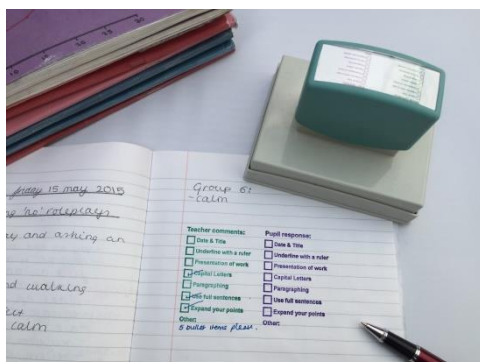 friday 15 may 2015
'no' roleplays
and asking an
and walking
calm
Group 6:
- calm
Teacher comments:
Date & Title
Underline with a ruler
Presentation of work
Capital Letters
Paragraphing
Use full sentences
Expand your points
Other:
5 bullet items please.
Pupil response:
Date & Title
Underline with a ruler
Presentation of work
Capital Letters
Paragraphing
Use full sentences
Expand your points
Other: